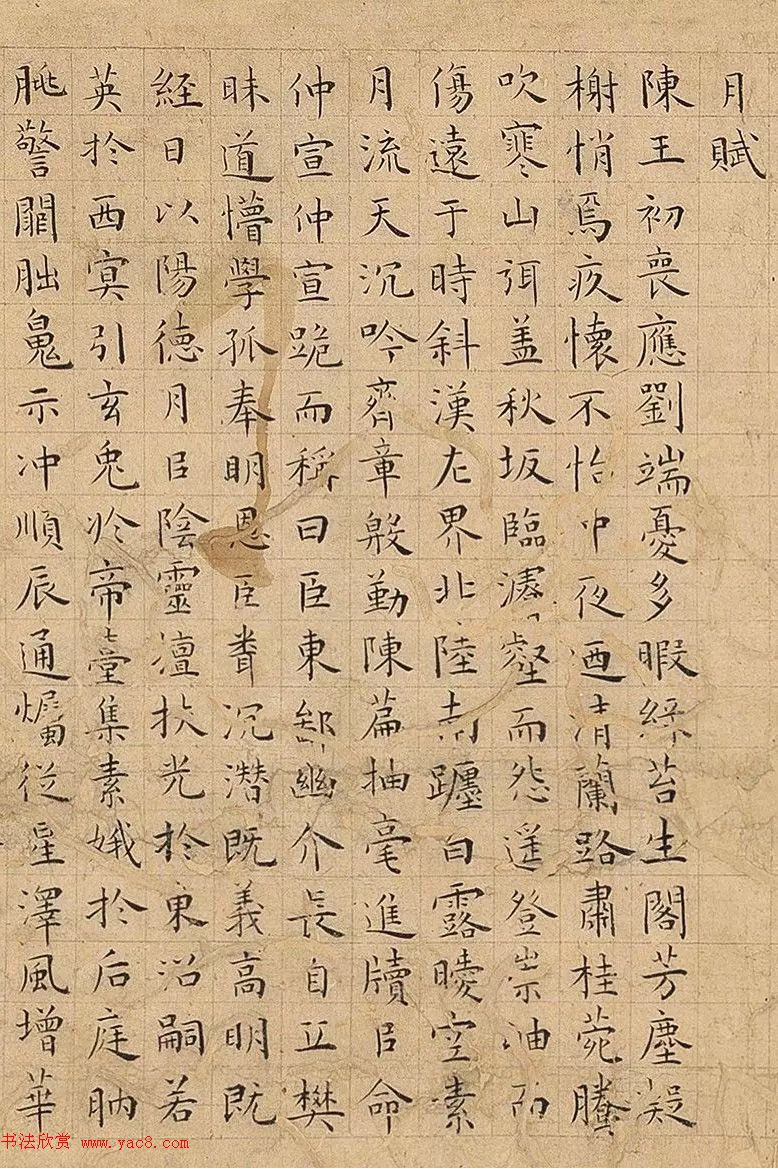 月賦
陳王初喪應劉端憂多暇綠苔生閣芳塵凝
榭悄焉疚懷不怡中夜迺清蘭路肅桂菀騰
吹寒山弭盖秋坂臨濬壑而怨遥登崇岫而
傷遠于時斜漢左界北陸南躔白露曖空素
月流天沉吟齊章殷勤陳篇抽毫進牘以命
仲宣仲宣跪而稱曰臣東鄙幽介長自丘樊
昧道懵學孤奉明恩臣䎽沉潛既義高明既
経日以陽德月以陰靈擅扶光於東沼嗣若
英於西冥引玄兔於帝臺集素娥於后庭朒
朓警闕朏魄示冲順辰通燭從星澤風增華
书法欣赏 www.yac8.com